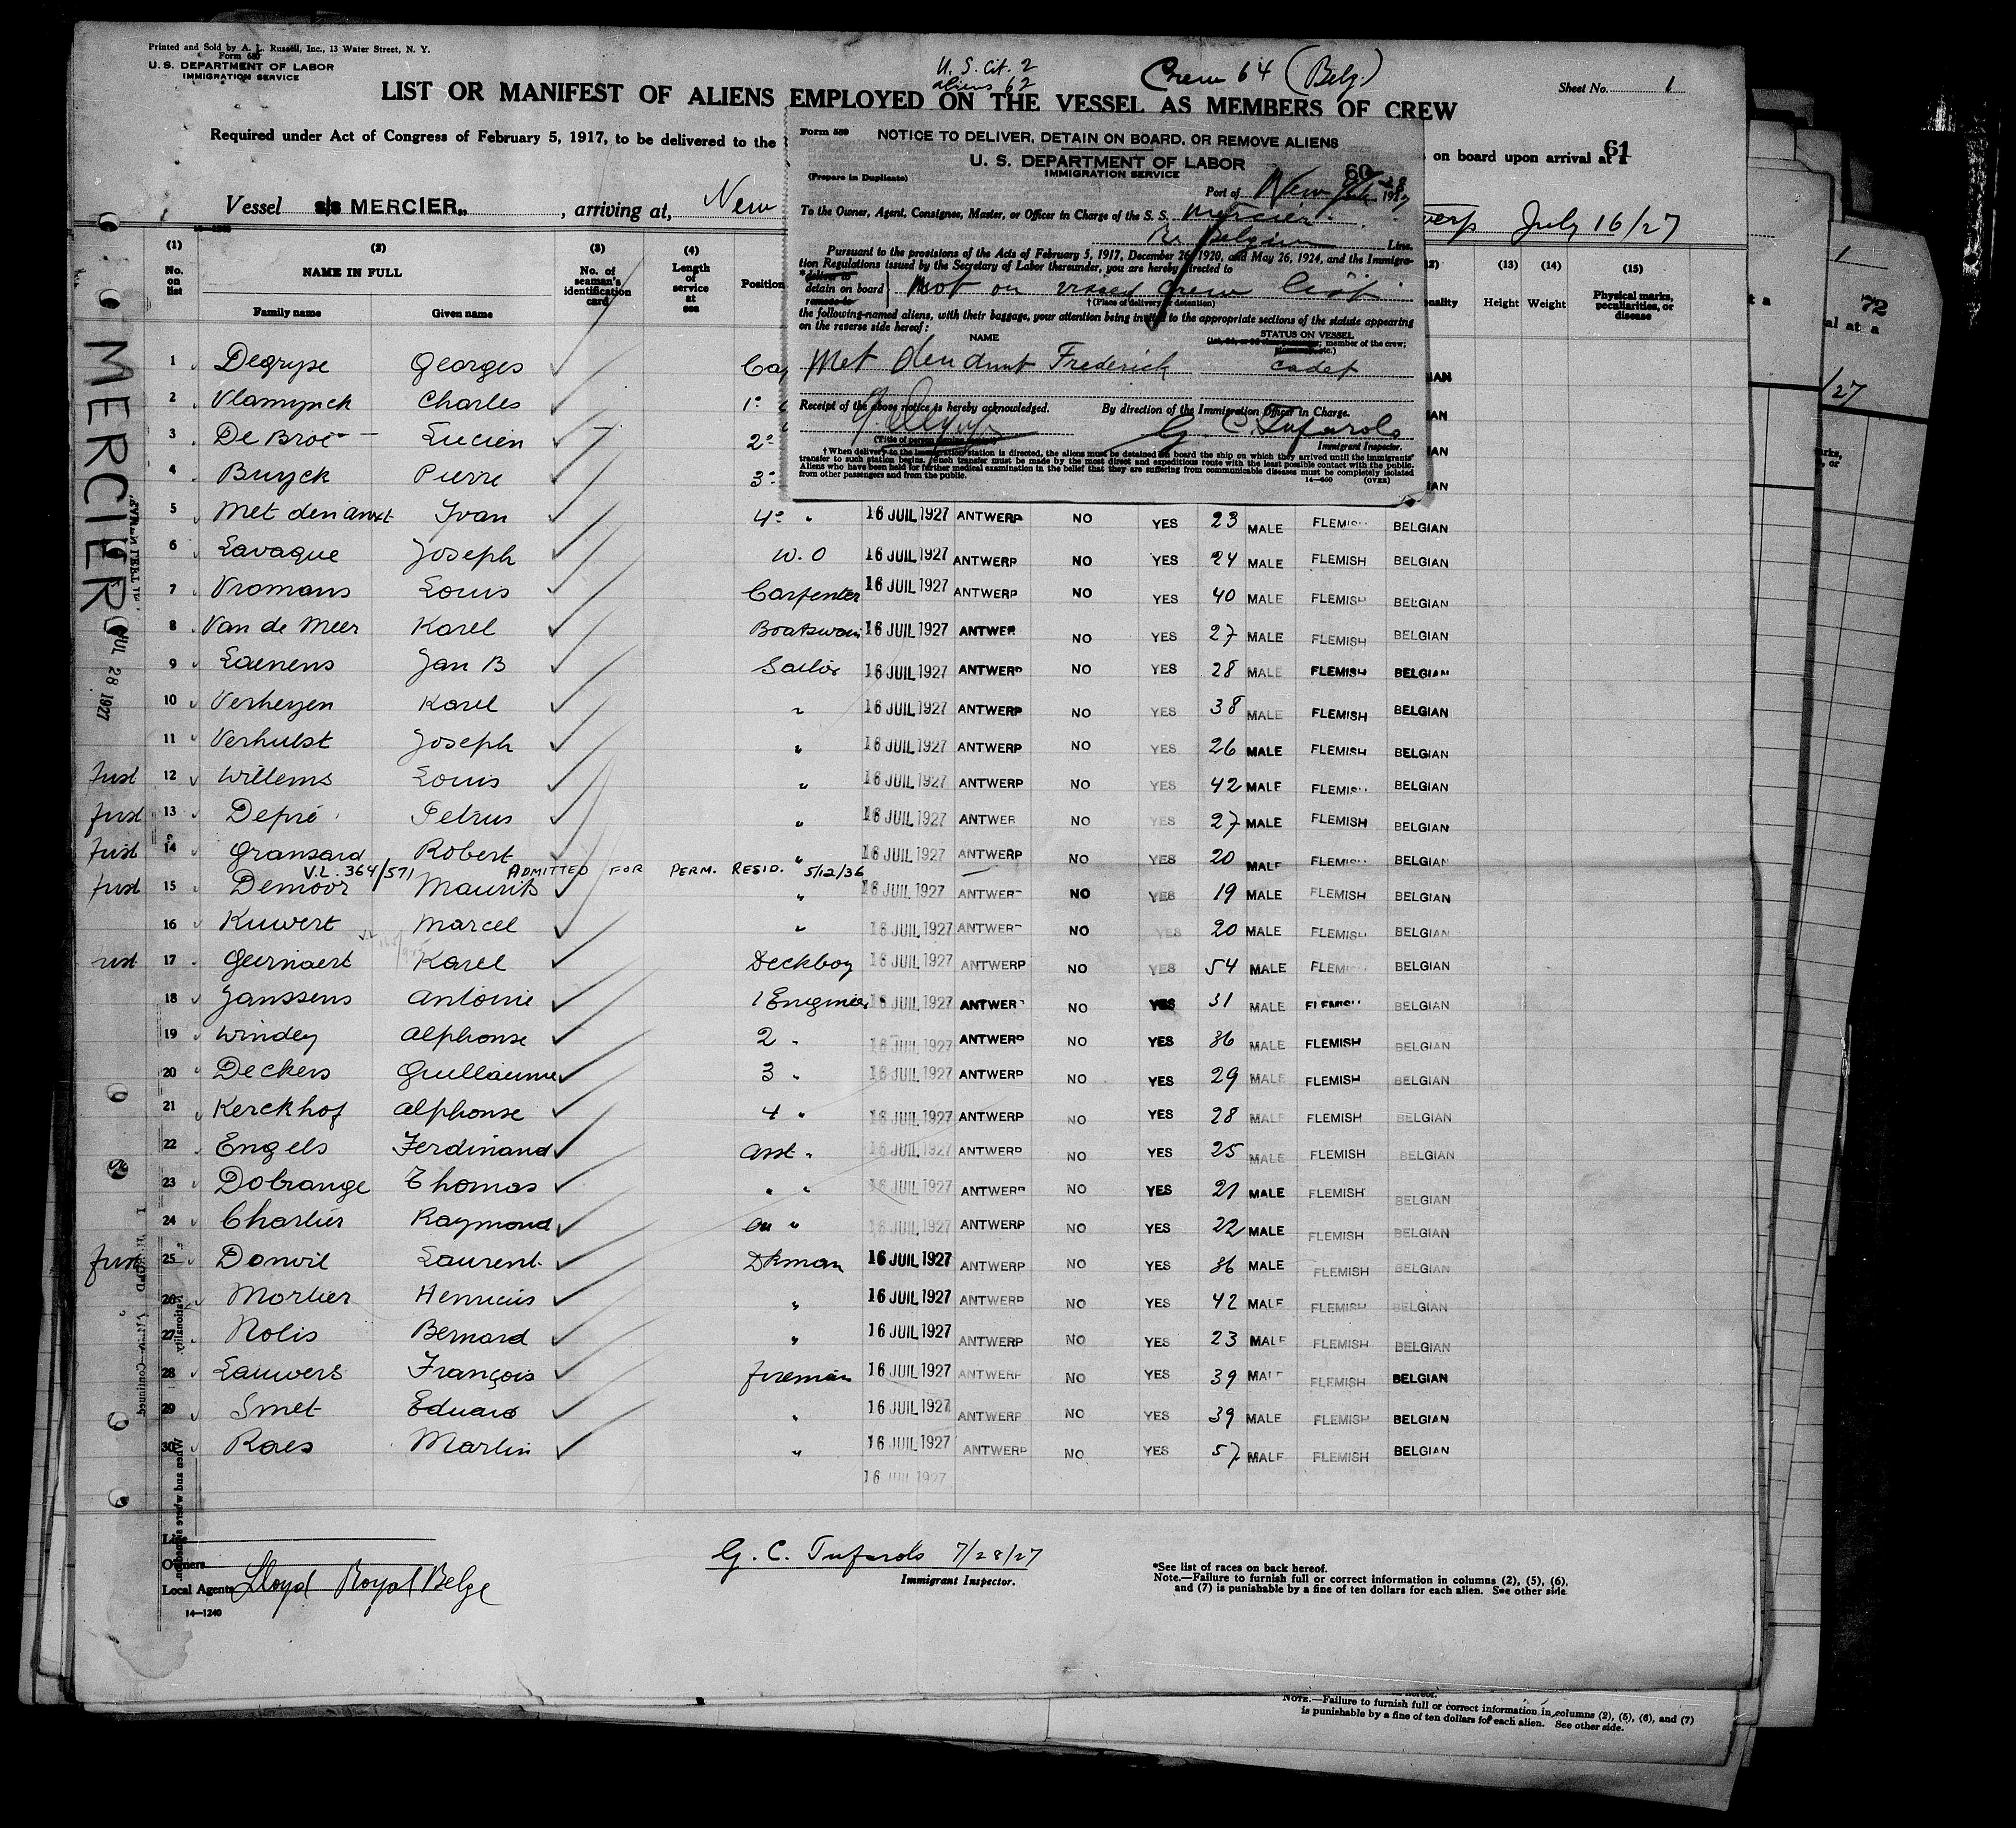 Printed and Sold by A. L. Russell, Inc., 13 Water Street, N. Y.
Form 689
U. S. DEPARTMENT OF LABOR
IMMIGRATION SERVICE
U. S. Cit. 2
aliens 62
Crew 64 (Belg.)
Sheet No. 1
LIST OR MANIFEST OF ALIENS EMPLOYED ON THE VESSEL AS MEMBERS OF CREW
Required under Act of Congress of February 5, 1917, to be delivered to the
on board upon arrival at a
61
Vessel s/s MERCIER,, , arriving at, New
werp July 16/27
Form 689
NOTICE TO DELIVER, DETAIN ON BOARD, OR REMOVE ALIENS
U. S. DEPARTMENT OF LABOR
IMMIGRATION SERVICE
(Prepare in Duplicate)
60
Port of New York 1927
To the Owner, Agent, Consignee, Master, or Officer in Charge of the S. S. Mercier
R. Belgium Line.
Pursuant to the provisions of the Acts of February 5, 1917, December 26, 1920, and May 26, 1924, and the Immigra-
tion Regulations issued by the Secretary of Labor thereunder, you are hereby directed to
*deliver to
detain on board
remove to
Not on visaed Crew list
†(Place of delivery or detention)
the following-named aliens, with their baggage, your attention being invited to the appropriate sections of the statute appearing
on the reverse side hereof:
NAME
STATUS ON VESSEL
member of the crew;
etc.)
Met den Anxt Frederick cadet
Receipt of the above notice is hereby acknowledged. By direction of the Immigration Officer in Charge.
G. C. Tufarolo
Immigrant Inspector.
†When delivery to the immigration station is directed, the aliens must be detained on board the ship on which they arrived until the immigrants'
transfer to such station begins. Such transfer must be made by the most direct and expeditious route with the least possible contact with the public.
Aliens who have been held for further medical examination in the belief that they are suffering from communicable diseases must be completely isolated
from other passengers and from the public.
14—660 (OVER)
(1) (2) (3) (4) (13) (14) (15)
No. on list
NAME IN FULL
Family name Given name
No. of seaman's identification card
Length of service at sea
Position
Height Weight
Physical marks, peculiarities, or disease
1 Degryse Georges
2 Vlamynck Charles 1°
3 De Broe Lucien 2°
4 Buyck Pierre 3°
5 Met den Anxt Ivan 4° " 16 JUIL 1927 ANTWERP NO YES 23 MALE FLEMISH BELGIAN
6 Lavaque Joseph W. O 16 JUIL 1927 ANTWERP NO YES 24 MALE FLEMISH BELGIAN
7 Vromans Louis Carpenter 16 JUIL 1927 ANTWERP NO YES 40 MALE FLEMISH BELGIAN
8 Van de Meer Karel Boatswain 16 JUIL 1927 ANTWER NO YES 27 MALE FLEMISH BELGIAN
9 Laenens Jan B Sailor 16 JUIL 1927 ANTWERP NO YES 28 MALE FLEMISH BELGIAN
10 Verheyen Karel " 16 JUIL 1927 ANTWERP NO YES 38 MALE FLEMISH BELGIAN
11 Verhulst Joseph " 16 JUIL 1927 ANTWERP NO YES 26 MALE FLEMISH BELGIAN
first 12 Willems Louis " 16 JUIL 1927 ANTWERP NO YES 42 MALE FLEMISH BELGIAN
first 13 Depré Petrus " 16 JUIL 1927 ANTWER NO YES 27 MALE FLEMISH BELGIAN
first 14 Gransard Robert " 16 JUIL 1927 ANTWERP NO YES 20 MALE FLEMISH BELGIAN
V.L. 364/571 ADMITTED FOR PERM. RESID. 5/12/36
first 15 Demoor Maurits " 16 JUIL 1927 ANTWERP NO YES 19 MALE FLEMISH BELGIAN
16 Kuwert Marcel " 16 JUIL 1927 ANTWERP NO YES 20 MALE FLEMISH BELGIAN
17 Geirnaert Karel Deckboy 16 JUIL 1927 ANTWERP NO YES 54 MALE FLEMISH BELGIAN
18 Janssens Antoine 1 Engineer 16 JUIL 1927 ANTWERP NO YES 31 MALE FLEMISH BELGIAN
19 Windey Alphonse 2 " 16 JUIL 1927 ANTWERP NO YES 36 MALE FLEMISH BELGIAN
20 Deckers Guillaume 3 " 16 JUIL 1927 ANTWERP NO YES 29 MALE FLEMISH BELGIAN
21 Kerckhof Alphonse 4 " 16 JUIL 1927 ANTWERP NO YES 28 MALE FLEMISH BELGIAN
22 Engels Ferdinand Asst " 16 JUIL 1927 ANTWERP NO YES 25 MALE FLEMISH BELGIAN
23 Dobrange Thomas " " 16 JUIL 1927 ANTWERP NO YES 21 MALE FLEMISH BELGIAN
24 Charlier Raymond " 16 JUIL 1927 ANTWERP NO YES 22 MALE FLEMISH BELGIAN
first 25 Donvil Laurent Dkman 16 JUIL 1927 ANTWERP NO YES 36 MALE FLEMISH BELGIAN
26 Mortier Henricus " 16 JUIL 1927 ANTWERP NO YES 42 MALE FLEMISH BELGIAN
27 Nolis Bernard " 16 JUIL 1927 ANTWERP NO YES 23 MALE FLEMISH BELGIAN
28 Lauwers François fireman 16 JUIL 1927 ANTWERP NO YES 39 MALE FLEMISH BELGIAN
29 Smet Eduard " 16 JUIL 1927 ANTWERP NO YES 39 MALE FLEMISH BELGIAN
30 Raes Martin " 16 JUIL 1927 ANTWERP NO YES 57 MALE FLEMISH BELGIAN
16 JUIL 1927
MERCIER
JUL 28 1927
Line
Owners
Local Agents Lloyd Royal Belge
14—1240
G. C. Tufarolo 7/28/27
Immigrant Inspector.
*See list of races on back hereof.
Note.—Failure to furnish full or correct information in columns (2), (5), (6),
and (7) is punishable by a fine of ten dollars for each alien. See other side
72
al at a
/27
NOTE.—Failure to furnish full or correct information in columns (2), (5), (6), and (7)
is punishable by a fine of ten dollars for each alien. See other side.